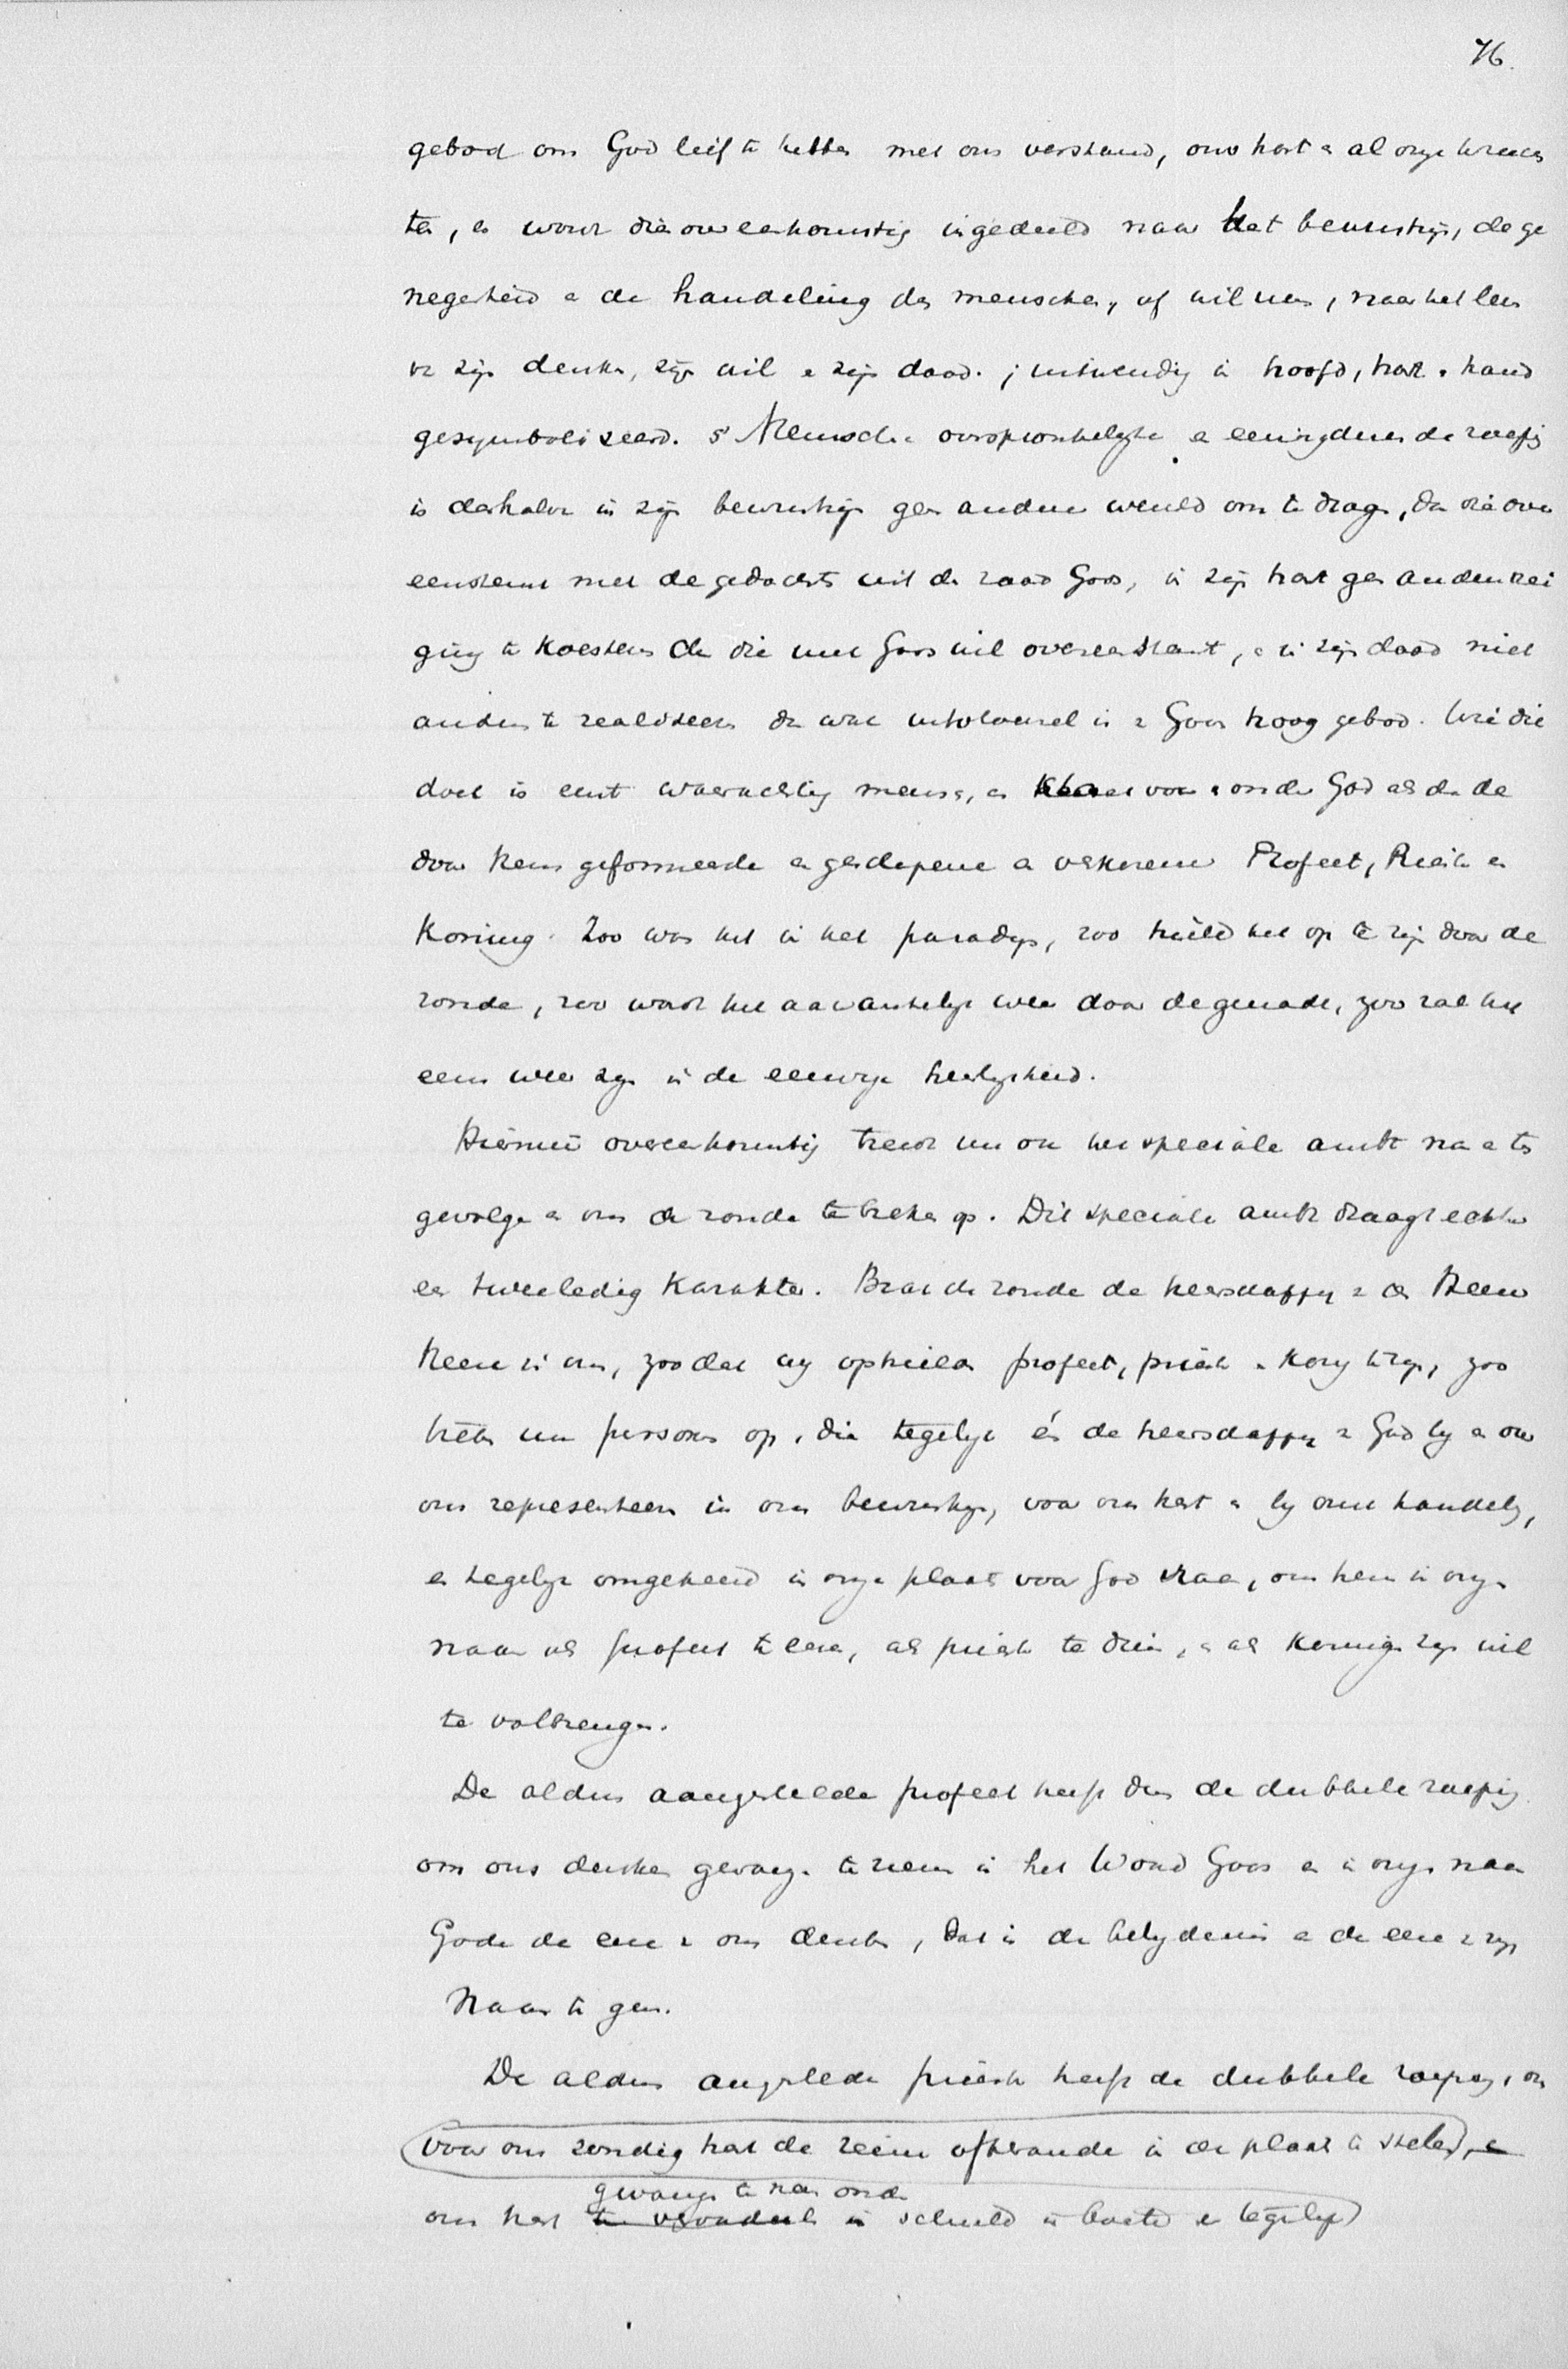 76.
gebod om God lief te hebben met ons verstand, ons hart en al onze krach
ten, en wordt die overeenkomstig ingedeeld naar het bewustzijn, de ge
negenheid en de handeling des menschen, of wil men, naar het leven
van zijn denken, zijn wil en zijn daad; uitwendig in hoofd, hart en hand
gesymboliseerd. 's Menschen oorspronkelijke en eeuwigdurende roeping
is derhalve in zijn bewustzijn geen andere wereld om te dragen, dan die over
eenstemt met de gedachte uit den raad Gods, in zijn hart geen andere nei
ging te koesteren dan die met Gods wil overeenstemt, en in zijn daad niet
anders te realiseeren dan wat uitvloeisel is van Gods hoog gebod. Wie die
doel is eerst waarachtig mensch, en staat voor en onder God als de de
door hem geformeerde en geschapene en verkorene Profeet, Priester en
Koning. Zoo was het in het paradijs, zoo hield het op te zijn door de
zonde, zoo wordt het aanvankelijk weer door de genade, zoo zal het
eens weer zijn in de eeuwige heerlijkheid.
Hiermeê overeenkomstig treedt nu ook het speciale ambt na en ten
gevolge en om de zonde te breken op. Dit speciale ambt draagt echter
een tweeledig karakter. Brak de zonde de heerschappij van den Heere
Heere in ons, zoodat wij ophielden profeet, priester en koning te zijn, zoo
treden nu personen op, die tegelijk én de heerschappij van God bij en over
ons representeeren in ons bewustzijn, voor ons hart en bij onze handeling,
en tegelijk omgekeerd in onze plaats voor God staan, om hem in onzen
naam als profeet te eeren, als priester te dienen, en als koning zijn wil
te volbrengen.
De aldus aangestelde profeet heeft dus de dubbele roeping
om ons denken gevangen te nemen in het Woord Gods en in onzen naam
Gode de eere van ons denken, dat is de belijdenis en de eere van zijn
Naam te geven.
De aldus aangestelde priester heeft de dubbele roeping, om
voor ons zondig hart de reine offerande in de plaats te stellen, en
gevangen te nemen onder
ons hart in schuld en boete en tegelijk